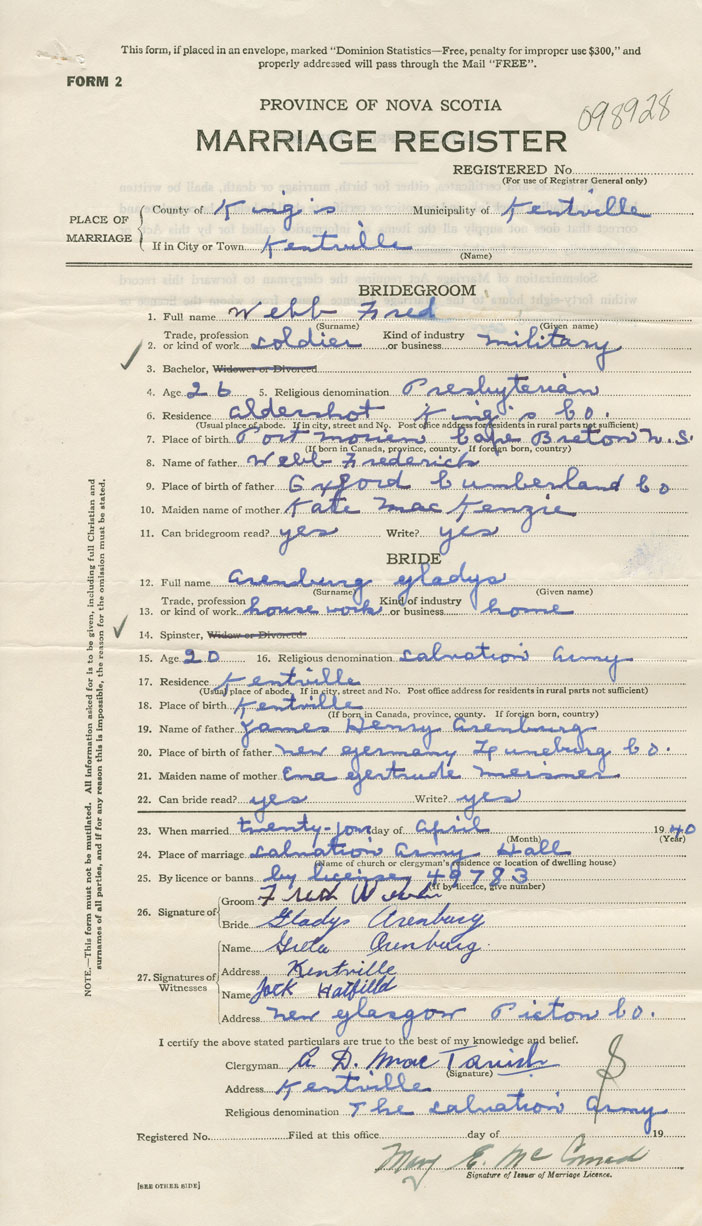 This form, if placed in an envelope, marked "Dominion Statistics—Free, penalty for improper use $300," and
properly addressed will pass through the Mail "FREE".
FORM 2
PROVINCE OF NOVA SCOTIA
098928
MARRIAGE REGISTER
REGISTERED No.
(For use of Registrar General only)
PLACE OF MARRIAGE
County of King's Municipality of Kentville
If in City or Town Kentville
(Name)
BRIDEGROOM
1. Full name Webb Fred
(Surname) (Given name)
2. Trade, profession or kind of work soldier Kind of industry or business military
3. Bachelor, Widower or Divorced
4. Age 26 5. Religious denomination Presbyterian
6. Residence aldershot King's Co.
(Usual place of abode. If in city, street and No. Post office address for residents in rural parts not sufficient)
7. Place of birth Port Morien Cape Breton N.S.
(If born in Canada, province, county. If foreign born, country)
8. Name of father Webb Frederick
9. Place of birth of father Oxford Cumberland Co
10. Maiden name of mother Kate MacKenzie
11. Can bridegroom read? yes Write? yes
BRIDE
12. Full name Arenburg Gladys
(Surname) (Given name)
13. Trade, profession or kind of work house work Kind of industry or business home
14. Spinster, Widow or Divorced
15. Age 20 16. Religious denomination Salvation Army
17. Residence Kentville
(Usual place of abode. If in city, street and No. Post office address for residents in rural parts not sufficient)
18. Place of birth Kentville
(If born in Canada, province, county. If foreign born, country)
19. Name of father James Henry Arenburg
20. Place of birth of father New Germany Lunenburg Co.
21. Maiden name of mother Gertrude Meisner
22. Can bride read? yes Write? yes
23. When married day of April 1940
(Month) (Year)
24. Place of marriage Salvation Army Hall
(Name of church or clergyman's residence or location of dwelling house)
25. By licence or banns by license 49783
(If by licence, give number)
26. Signature of
Groom Fred Webb
Bride Gladys Arenburg
27. Signatures of Witnesses
Name Greta Arenburg
Address Kentville
Name Jack Hatfield
Address New Glasgow Pictou Co.
I certify the above stated particulars are true to the best of my knowledge and belief.
Clergyman A. D. MacTavish
(Signature)
Address Kentville
Religious denomination The Salvation Army
Registered No. Filed at this office day of 19
Mary E. McConnad
Signature of Issuer of Marriage Licence.
[SEE OTHER SIDE]
NOTE.—This form must not be mutilated. All information asked for is to be given, including full Christian and
surnames of all parties, and if for any reason this is impossible, the reason for the omission must be stated.